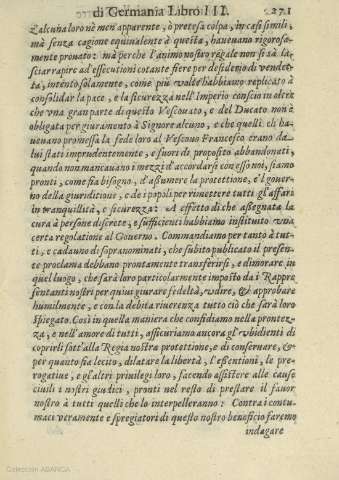 di Germania Libro III. 271
alcuna loro nè men' apparente, ò pretesa colpa, in casi simili,
mà senza cagione equiualente à questa, haueuano rigorosa-
mente prouato: mà perche l'animo nostro regale non si sà la-
sciar rapire ad essecutioni cotante fiere per desiderio di vendet-
ta, intento solamente, come più volte habbiamo replicato à
consolidar la pace, e la sicurezza nell'Imperio conscio in oltre
che vna gran parte di questo Vescouato, e del Ducato non è
obligata per giuramento à Signore alcuno, e che quelli che ha-
ueuano promessa la fede loro al Vescouo Francesco erano da
lui stati imprudentemente, e fuori di proposito abbandonati,
quando non mancauano i mezzi d'accordarsi con esso noi, siamo
pronti, come fia bisogno, d'assumere la protettione, e'l gouer-
no della giuridittione, e de i popoli per rimettere tutti gl'affari
in tranquillità, e sicurezza: A effetto di che assegnata la
cura à persone discrete, e sufficienti habbiamo instituito vna
certa regolatione al Gouerno. Commandiamo per tanto à tut-
ti, e cadauno di sopranominati, che subito publicato il presen-
te proclama debbano prontamente transferirsi, e dimorare in
quel luogo, che sarà loro particolarmente imposto da i Rappre
sentanti nostri per quiui giurare fedeltà, vdire, & approbare
humilmente, e con la debita riuerenza tutto ciò che sarà loro
spiegato. Così in quella maniera che confidiamo nella prontez-
za, e nell'amore di tutti, assicuriamo ancora gl'vbidienti di
coprirli sott'alla Regia nostra protettione, e di conseruare, &
per quanto sia lecito, dilatare la libertà, l'essentioni, le pre-
rogatiue, e gl'altri priuilegi loro, facendo assistere alle cause
ciuili i nostri giudici, pronti nel resto di prestare il fauor
nostro à tutti quelli che lo interpelleranno: Contra i contu-
maci veramente e spregiatori di questo nostro beneficio faremo
indagare
Colección ABANCA